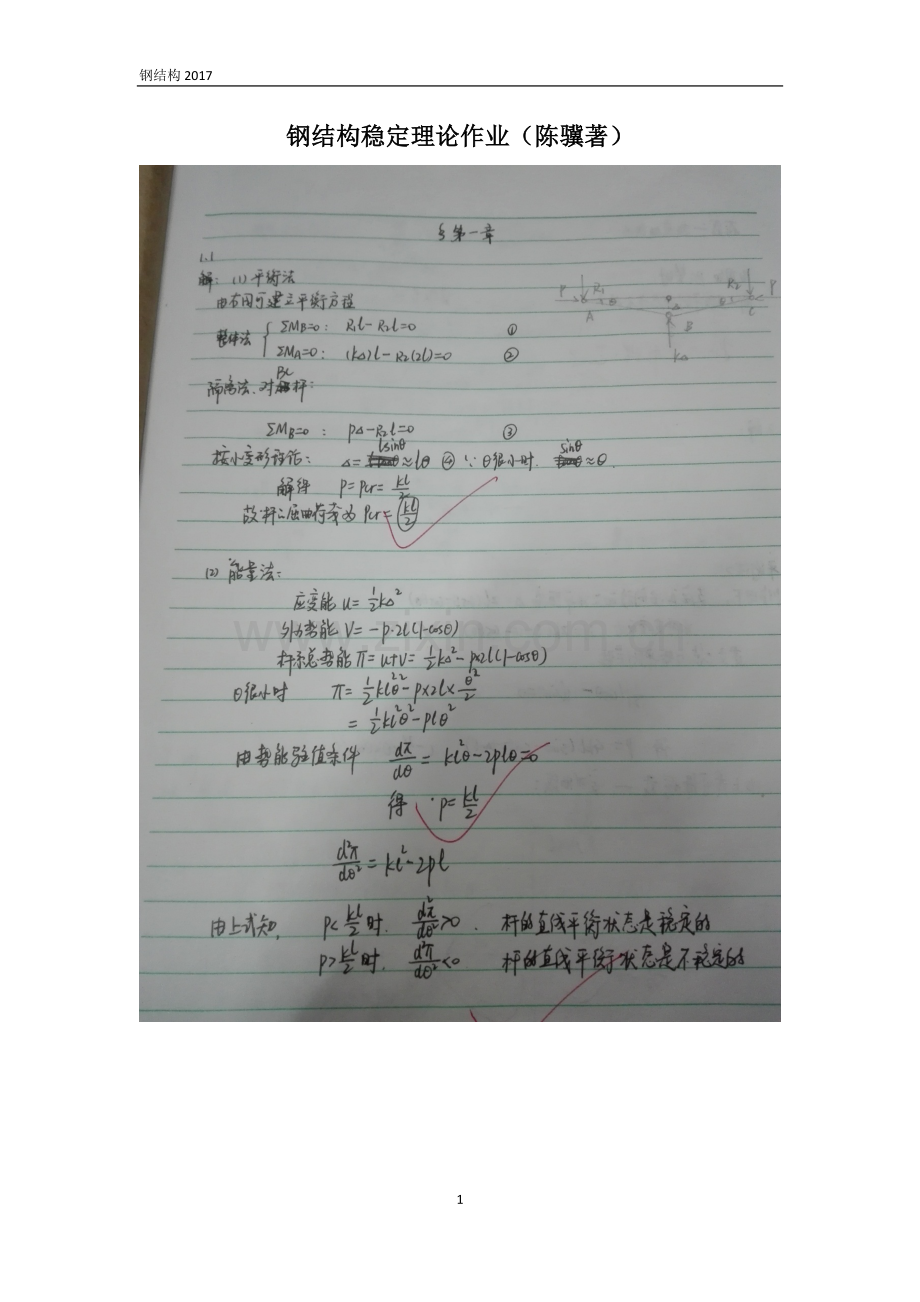 钢结构 2017
钢结构稳定理论作业（陈骥著）
§第一章
1.1
解：(1)平衡法
由右图可建立平衡方程
整体法 { ΣMB=0： R1l－R2l=0 ①
ΣMA=0： (kΔ)l－R2(2l)=0 ②
隔离法，对BC杆：
ΣMB=0： PΔ－R2l=0 ③
按小变形理论： Δ=lsinθ≈lθ ④ ∵θ很小时， sinθ≈θ.
解得 P=Pcr=kl/2
故杆之屈曲荷载为 Pcr=kl/2
P R1 θ A Δ B kΔ θ R2 P C
(2) 能量法：
应变能 u=½kΔ²
外力势能 V=－P·2l(1-cosθ)
杆系总势能 π=u+v=½kΔ²－P×2l(1-cosθ)
θ很小时 π=½kl²θ²－P×2l×θ²/2
=½kl²θ²－Plθ²
由势能驻值条件 dπ/dθ=kl²θ－2Plθ=0
得 P=kl/2
d²π/dθ²=kl²－2Pl
由上式知， P<kl/2时， d²π/dθ²>0 ． 杆的直线平衡状态是稳定的
P>kl/2时． d²π/dθ²<0 杆的直线平衡状态是不稳定的
1